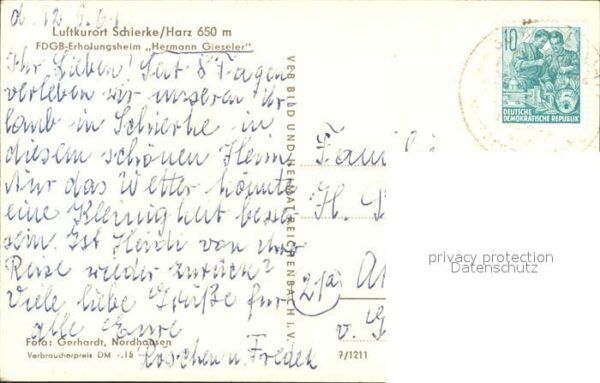 d. 12.6.61
Luftkurort Schierke/Harz 650 m
FDGB-Erholungsheim „Hermann Gieseler"
Ihr Lieben! Seit 8 Tagen
verleben wir unseren Ur
laub in Schierke in
diesem schönen Heim
Nur das Wetter könnte
eine Kleinigkeit besser
sein. Ist Heidi von ihrer
Reise wieder zurück?
Viele liebe Grüße für
alle Eure
Röschen u. Fredek
Foto: Gerhardt, Nordhausen
Verbraucherpreis DM -.15
VEB BILD UND HEIMAT REICHENBACH i. V.
7/1211
10
5
DEUTSCHE
DEMOKRATISCHE REPUBLIK
Fami
H.
(21a)
v. G
privacy protection
Datenschutz